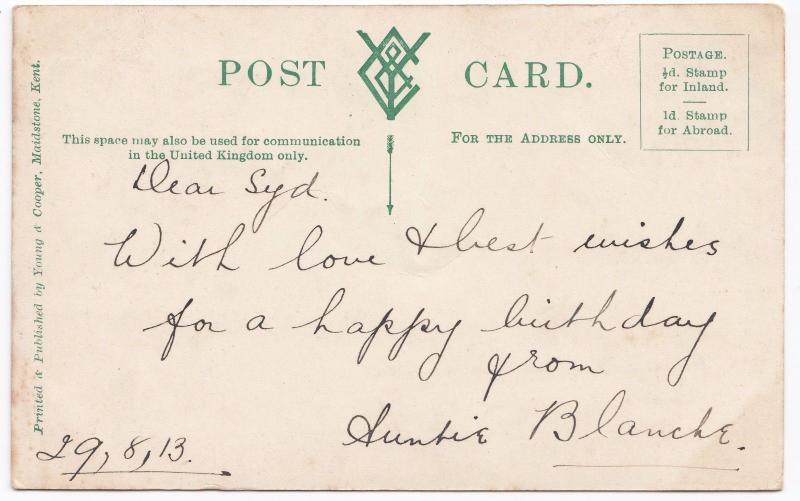 POST CARD.
POSTAGE.
½d. Stamp
for Inland.
1d. Stamp
for Abroad.
This space may also be used for communication
in the United Kingdom only.
FOR THE ADDRESS ONLY.
Printed & Published by Young & Cooper, Maidstone, Kent.
Dear Syd.
With love & best wishes
for a happy birthday
from
Auntie Blanche.
29,8,13.